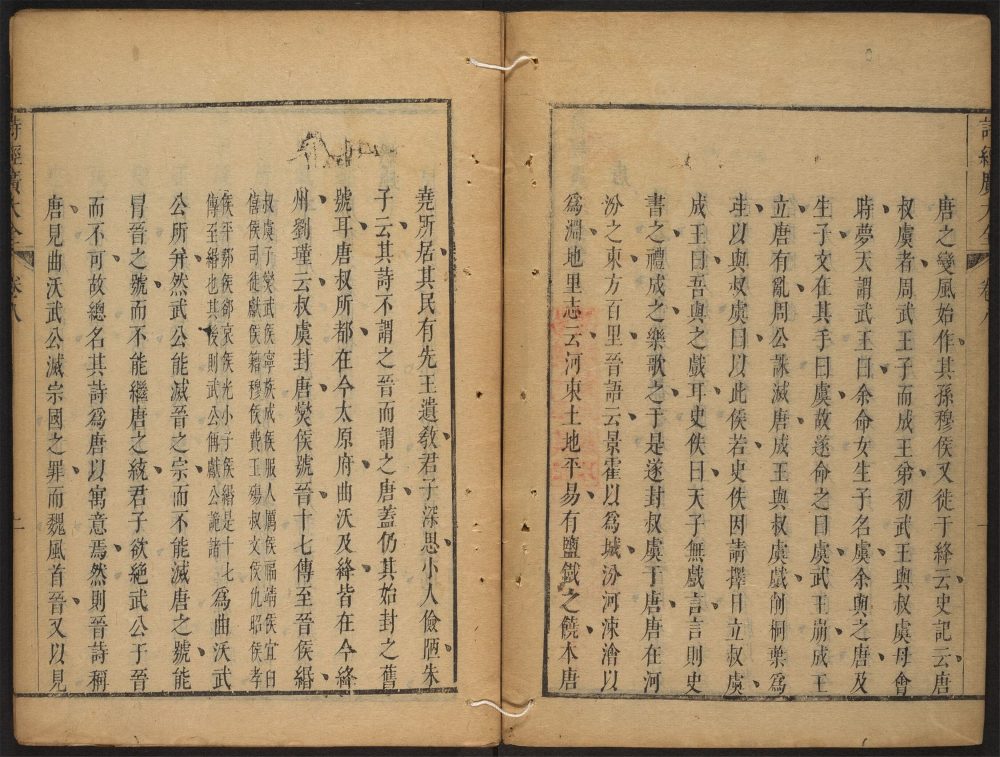 詩經廣大全
卷八
一
唐之變風始作其孫穆侯又徙于絳云史記云唐
叔虞者周武王子而成王弟初武王與叔虞母會
時夢天謂武王曰余命女生子名虞余與之唐及
生子文在其手曰虞故遂命之曰虞武王崩成王
立唐有亂周公誅滅唐成王與叔虞戲削桐葉爲
珪以與叔虞曰以此侯若史佚因請擇日立叔虞
成王曰吾與之戲耳史佚曰天子無戲言言則史
書之禮成之樂歌之于是遂封叔虞于唐唐在河
汾之東方百里晉語云景霍以爲城汾河涑澮以
爲淵地里志云河東土地平易有鹽鐵之饒本唐
堯所居其民有先王遺敎君子深思小人儉陋朱
子云其詩不謂之晉而謂之唐蓋仍其始封之舊
號耳唐叔所都在今太原府曲沃及絳皆在今絳
州劉瑾云叔虞封唐燮侯號晉十七傳至晉侯緡
叔虞子燮武侯寧族成侯服人厲侯福靖侯宜臼
僖侯司徒獻侯籍穆侯費王殤叔文侯仇昭侯孝
侯平鄂侯郤哀侯光小子侯緡是十七
傳至緡也其後則武公傳獻公詭諸
爲曲沃武
公所并然武公能滅晉之宗而不能滅唐之號能
冐晉之號而不能繼唐之統君子欲絕武公于晉
而不可故總名其詩爲唐以寓意焉然則晉詩稱
唐見曲沃武公滅宗國之罪而魏風首晉又以見
詩經廣大全
卷八
二